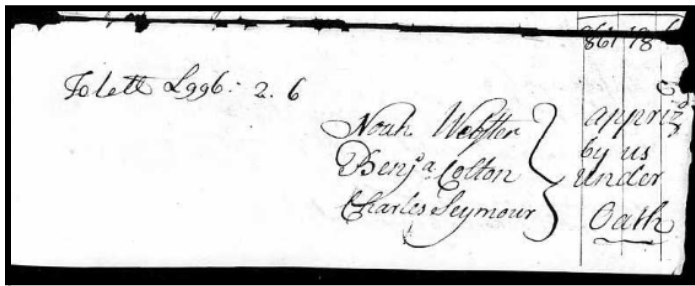 861 18
Totall £996: 2. 6
Noah Webster
Benjᵃ Colton
Charles Seymour
apprizᵈ
by us
under
Oath